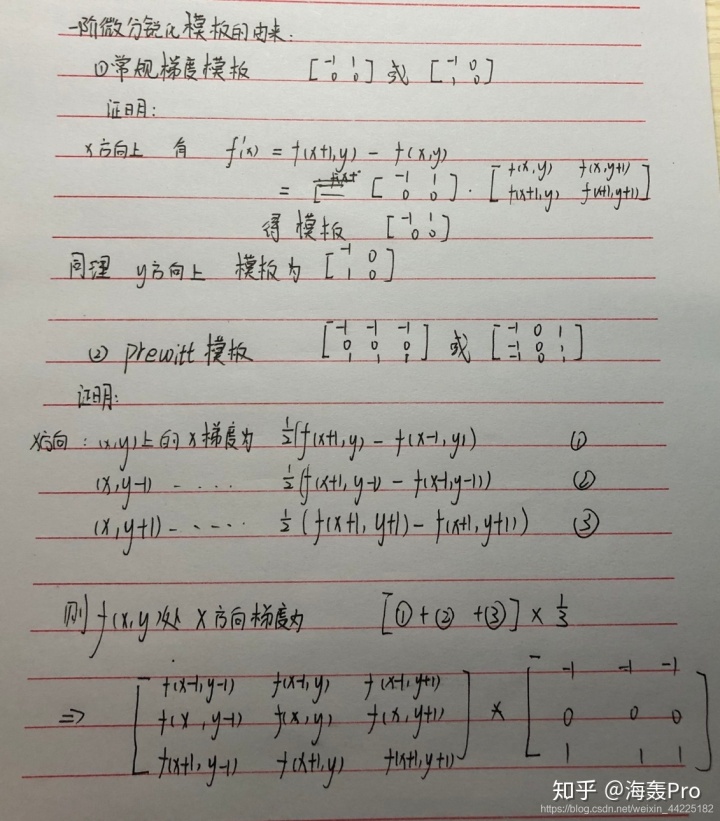 一阶微分锐化模板的由来:
①常规梯度模板 [-1 1 0 0] 或 [-1 0 1 0]
证明:
x方向上 有 f'(x) = f(x+1,y) - f(x,y)
= [-1 1 0 0] · [f(x,y) f(x,y+1) f(x+1,y) f(x+1,y+1)]
得 模板 [-1 1 0 0]
同理 y方向上 模板为 [-1 0 1 0]
(2) prewitt 模板 [-1 -1 -1 0 0 0 1 1 1] 或 [-1 0 1 -1 0 1 -1 0 1]
证明:
x方向: (x,y)上的x梯度为 ½(f(x+1,y) - f(x-1,y)) ①
(x,y-1) ----- ½(f(x+1,y-1) - f(x-1,y-1)) ②
(x,y+1) ----- ½(f(x+1,y+1) - f(x+1,y+1)) ③
则 f(x,y)处 x方向梯度为 [①+②+③] × ⅓
f(x-1,y-1) f(x-1,y) f(x-1,y+1) -1 -1 -1
⇒ f(x,y-1) f(x,y) f(x,y+1) * 0 0 0
f(x+1,y-1) f(x+1,y) f(x+1,y+1) 1 1 1
知乎 @海轰Pro
https://blog.csdn.net/weixin_44225182